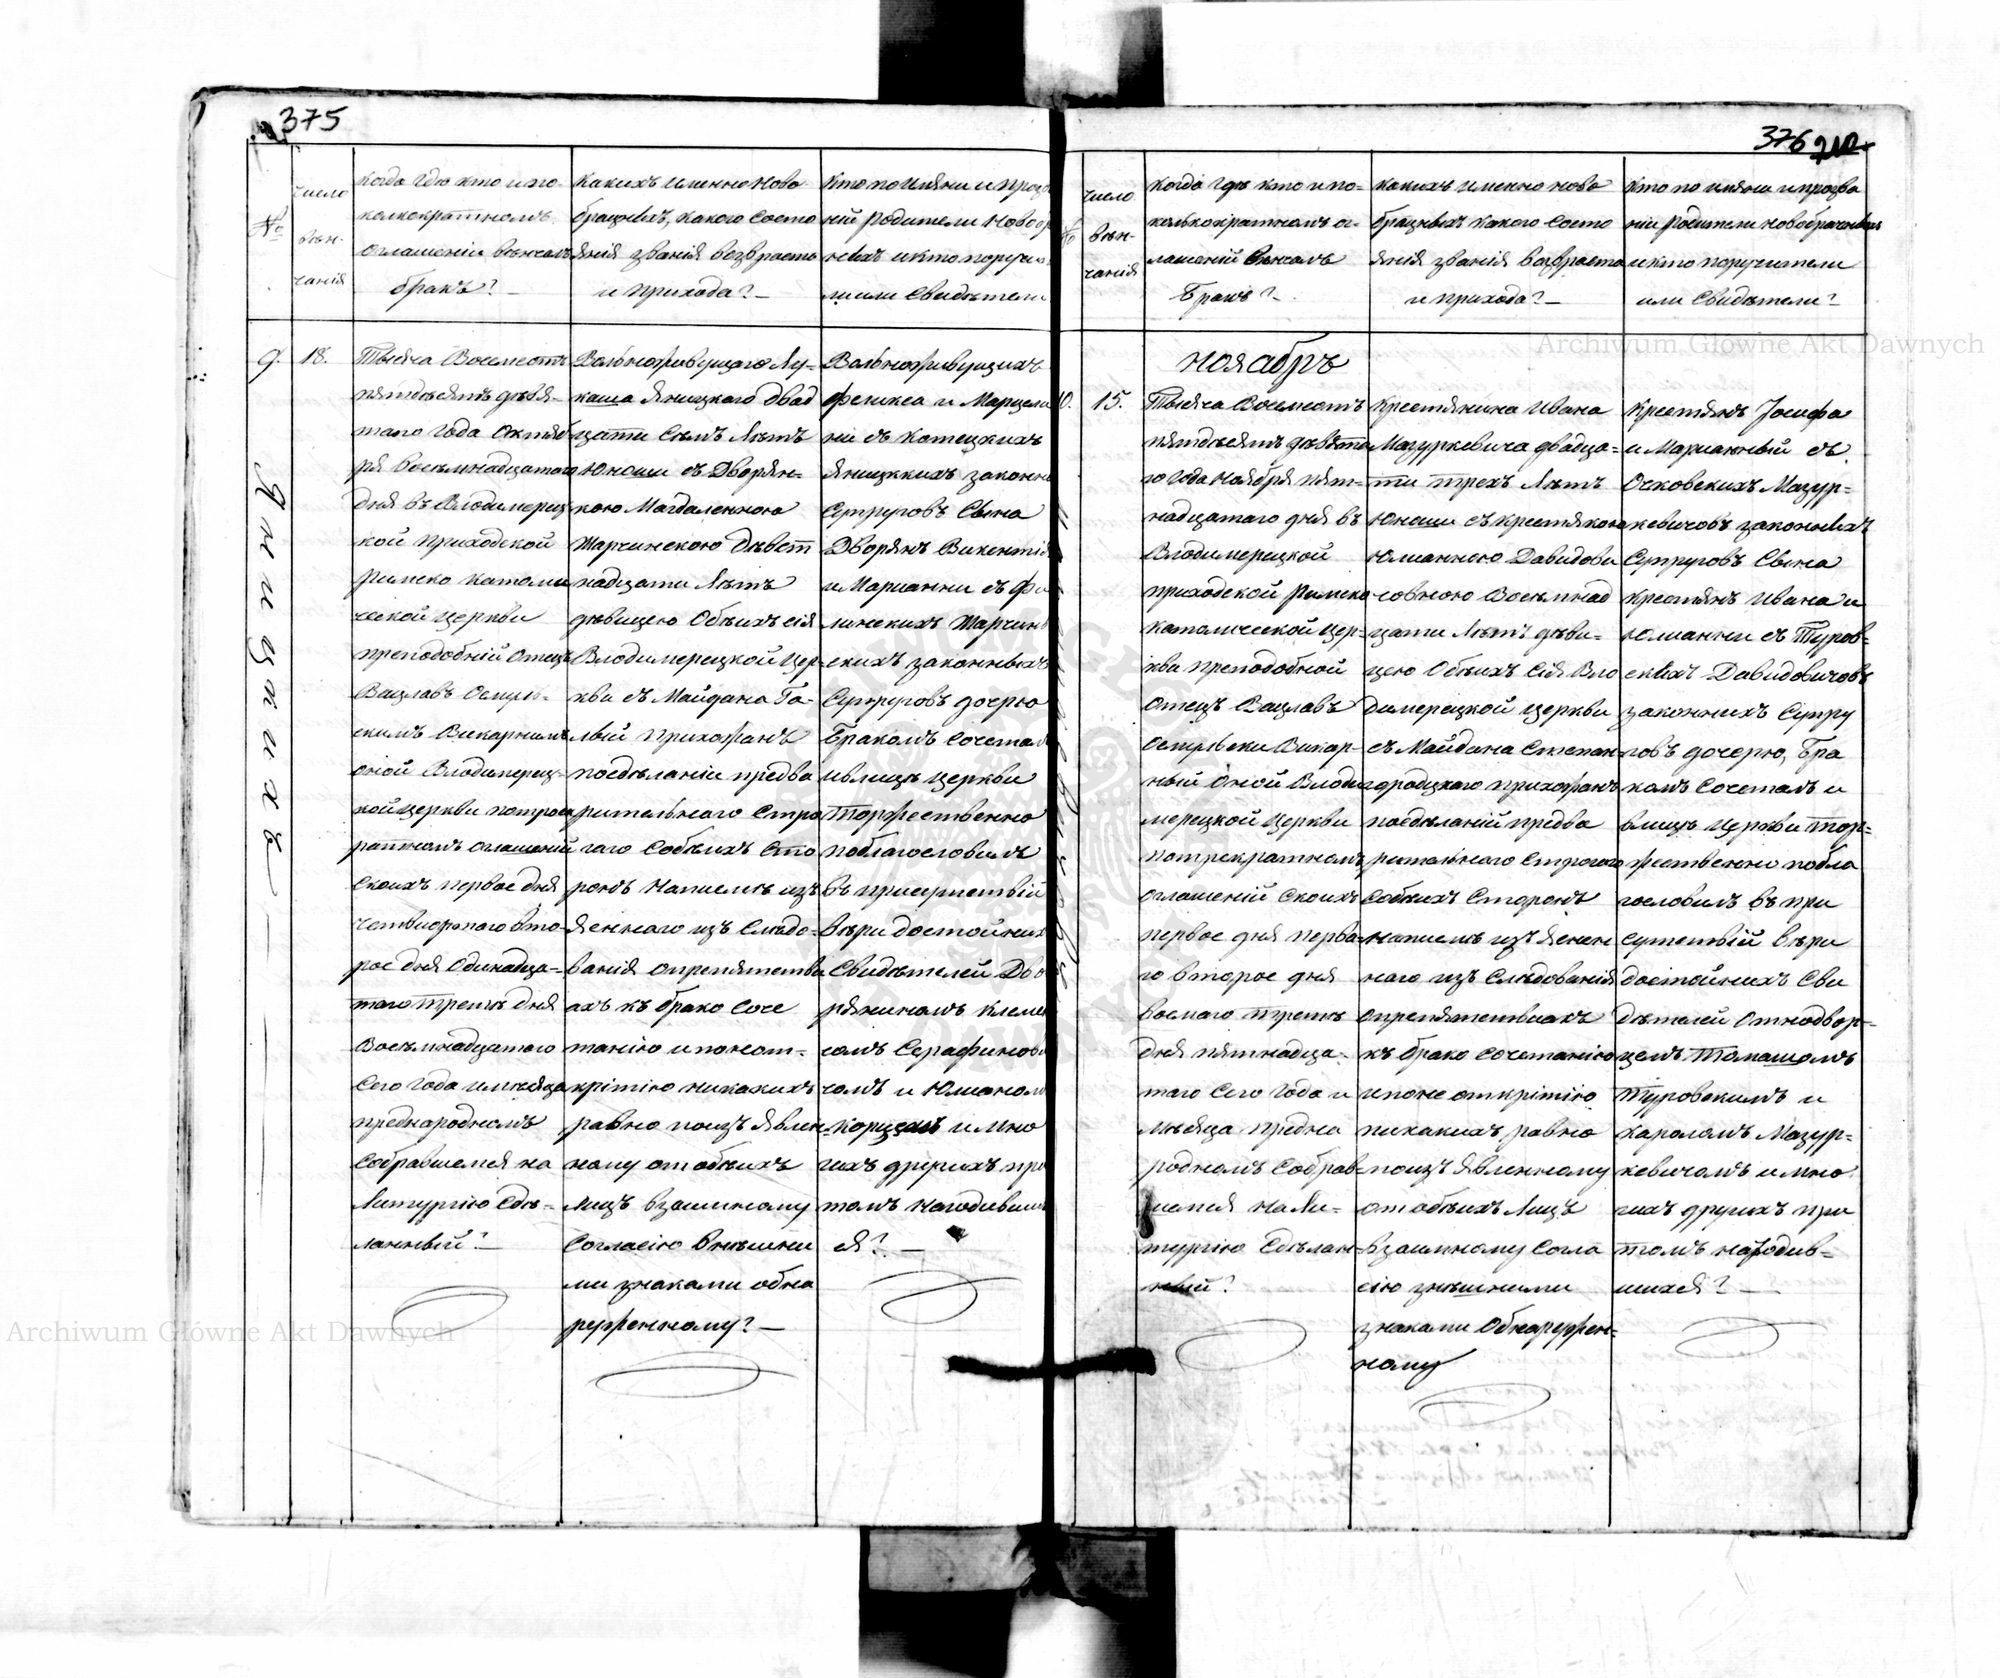 375
№
число
вѣн-
чанія
Когда гдѣ кто и по
колкократномъ
оглашеніи вѣнчалъ
бракъ? —
Какихъ именно ново
брачныхъ, какого состо
янія званія возраста
и прихода? —
Кто по имяни и прозв
ній родители новобр
ныхъ и кто поручи
ли или свидѣтели
9.
18.
Яницкихъ
Тысяча Восемсотъ
пятдесятъ девя-
таго года Октяб
ря восемнадцатаго
дня въ Влодимерец
кой приходской
Римско Католи
ческой церкви
преподобній Отецъ
Вацлавъ Остров-
скимъ Викарнимъ
оной Владимерец-
кой церкви потроек
ратномъ оглашеній
своихъ первое дня
четвиортого вто-
рое дня Одинадца-
таго третъ дня
Восемнадцатого
сего года и мѣсяца
преднародномъ
собравшемся на
Литургію сдѣ-
ланный? —
Вольноживущаго Лу-
каша Яницкаго двад
цати семъ Лѣтъ
Юноши съ Дворян-
кою Магдаленною
Жарчинскою девят
надцати Лѣтъ
дѣвицею Обѣихъ сія
Влодимерецкой цер-
кви съ Майдана Га-
лый прихожанъ
посдѣланіи предва
рительнаго стро
гаго собѣихъ сто
ронъ написмѣ изъ
ясеннаго изъ слѣдо-
ванія опрепятстви
ахъ къ брако соче
танію и понеот-
крітію никакихъ
равно поизъявлен
ному отобѣихъ
лицъ взаимному
согласію внѣшни
ми знаками обна
руженному? —
Вольноживущихъ
Феликса и Марцели
ни съ Котецкихъ
Яницкихъ законни
Супруговъ Сына
Дворянъ Викентія
и Марианни съ Фи
линскихъ Жарчин
скихъ законныхъ
Супруговъ дочерю
Бракомъ сочетал
ивлицѣ церкви
Торжественно
поблагословилъ
въ присутствій
вѣри достойних
Свидѣтелей Дво
ряниномъ Клеме
сомъ Серафинови
чомъ и Юлианом
Корщемъ и мно
гихъ другихъ при
томъ находивших
ся? —
376
№
число
вѣн-
чанія
Когда гдѣ кто и по-
колькократномъ ог-
лашеній вѣнчалъ
Бракъ? —
Какихъ именно ново
брачныхъ какого состо
янія званія возраста
и прихода? —
Кто по имяни и прозва
ніи родители новобрачныхъ
и кто поручители
или свидѣтели? —
Ноябръ
10.
15.
Тысяча Восемсотъ
пятдесятъ девята
го года Ноября пят-
надцатаго дня въ
Влодимерецкой
приходской Римско
Католической цер-
кви преподобной
Отецъ Вацлавъ
Островски Викар-
ный Оной Влоди
мерецкой церкви
потрекратномъ
оглашеній своихъ
первое дня перва
го второе дня
восмаго третъ
дня пятнадца-
таго сего года и
мѣсяца предна
родномъ собрав-
шемся на Ли-
тургію сдѣлан-
ный?
Крестянина Ивана
Мазуркевича двадца-
ти трехъ Лѣтъ
Юноши съ крестянкою
Юлианною Давидови
човною Восемнад
цати Лѣтъ дѣви-
цею Обѣихъ сія Вло
димерецкой церкви
съ Майдана Степан-
городцкаго прихожанъ
посдѣланій предва
рительнаго строгаго
собѣихъ сторонъ
написмѣ изъ ясен
наго изъ слѣдованія
опрепятствиахъ
къ брако сочетанію
ипоне открітію
никакихъ равно
поизъявленному
отобѣихъ лицъ
взаимному согла
сію знѣшними
знаками Обнаружен-
ному
Крестянъ Іосифа
и Марианный съ
Очковскихъ Мазур-
кевичовъ законныхъ
Супруговъ Сына
Крестянъ Ивана и
Юлианни съ Туров-
скихъ Давидовичовъ
законнихъ Супру
говъ дочерю, бра
комъ сочеталъ и
влицѣ церкви тор-
жественно побла
гословилъ въ при
сутствій вѣри
достойнихъ Сви
дѣтелей Отнодвор-
цемъ Томашомъ
Туровскимъ и
Каролемъ Мазур-
кевичомъ и мно
гихъ другихъ при
томъ находив-
шихся? —
Archiwum Główne Akt Dawnych
Archiwum Główne Akt Dawnych